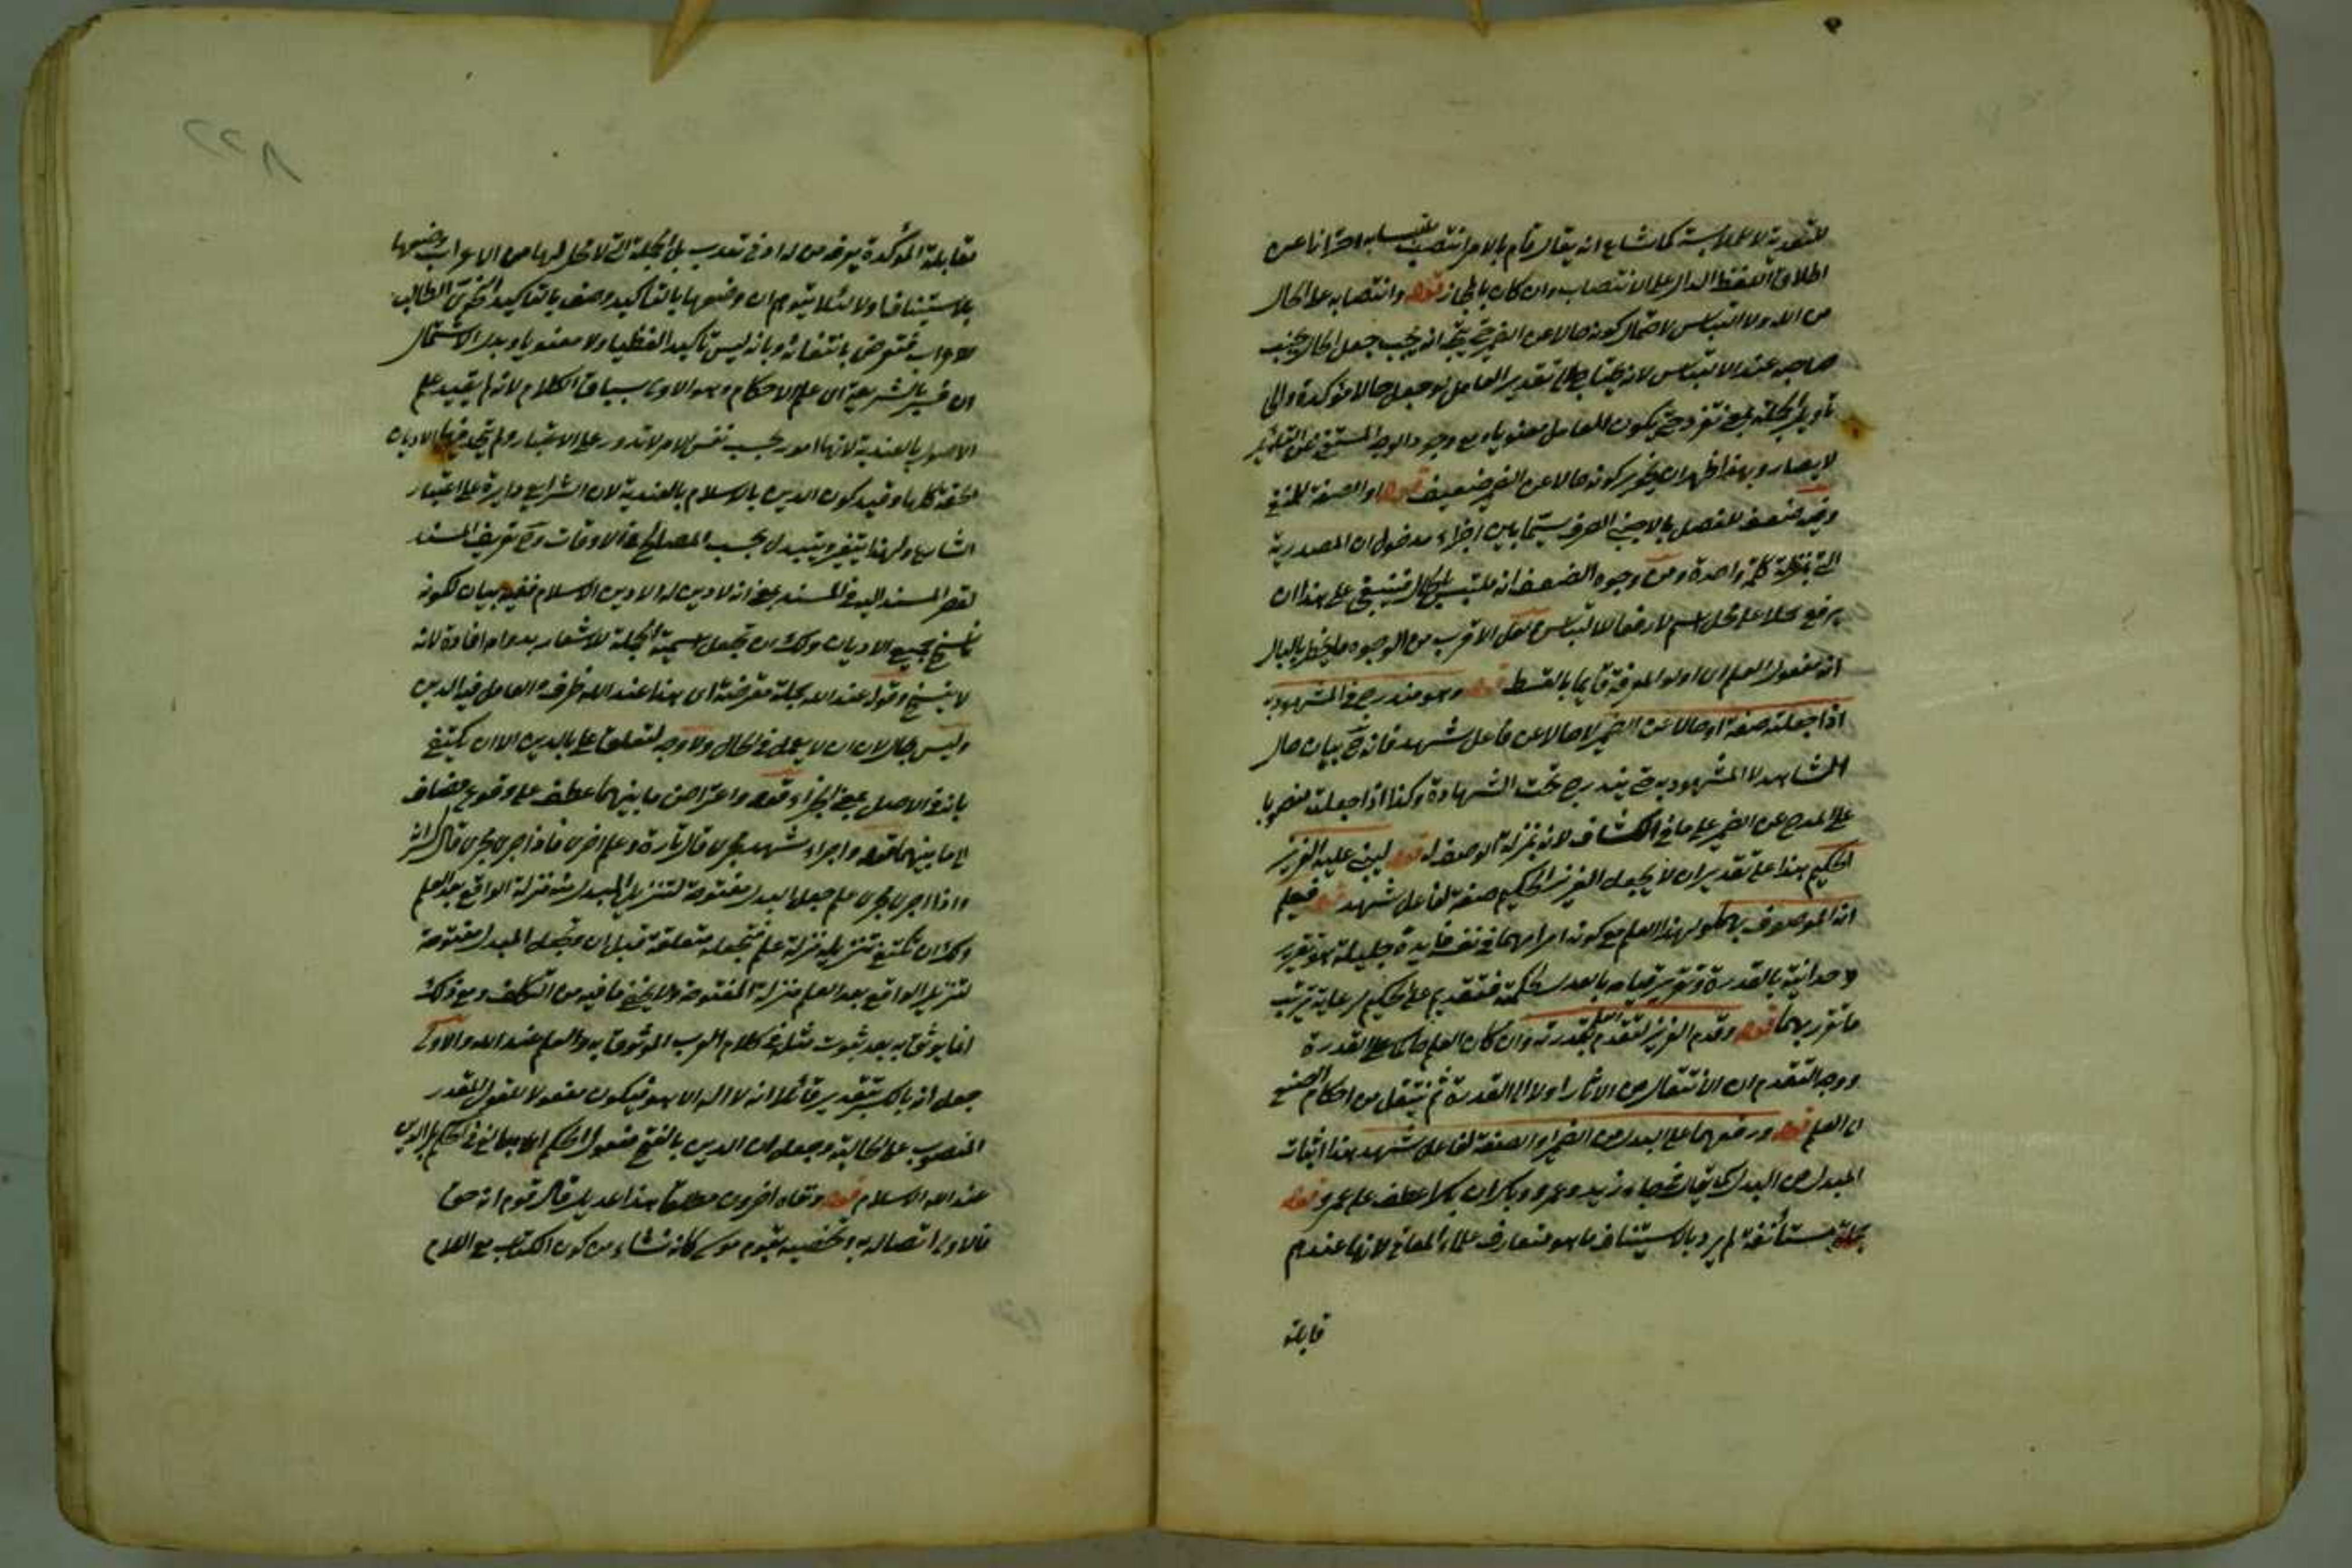 للتعدية لا للملابسة كما شاع انه يقال قام بالامر انتصب احترازا عن
اطلاق اللفظ الدال على الانتصاب وان كان بالمجاز قوله وانتصابه على الحال
من الله ولا التباس لاحتمال كونه حالا عن الضمير حتى يتجه انه يجب جعل الحال بجنب
صاحبه عند الالتباس لانه يحتاج الى تقدير العامل لو جعل حالا مؤكدة والى
تأويل الجملة بمعنى تفرد حتى يكون للعامل معنويا ومع وجود الوجه المستغنى عن التقدير
لا يصار وبهذا ظهر ان تجويز كونه حالا عن الضمير ضعيف قوله او الصفة للمنفي
وفيه ضعف للفصل بالاجنبي الصرف سيما بين اجزاء مدخول ان المصدرية
التي بمنزلة كلمة واحدة ومن وجوه الضعف انه ملتبس بالحال فينبغي على هذا ان
يرفع حملا على محل اسم لا رفعا للالتباس ولعل الاقرب من الوجوه ما يخطر بالبال
انه مفعول العلم اي اولو المعرفة قايما بالقسط قوله وهو مندرج في المشهود به
اذا جعلته صفة او حالا عن الضمير لا حالا عن فاعل شهد فانه ح بيان حال
الشاهد لا المشهود به حتى يندرج تحت الشهادة وكذا اذا جعلت منصوبا
على المدح عن الضمير على ما في الكشاف لانه بمنزلة الوصف له قوله ليبنى عليه العزيز
الحكيم هذا على تقدير ان لا يجعل العزيز الحكيم صفة لفاعل شهد قوله فيعلم
انه الموصوف بهما ولهذا العلم مع كونه امرا مهما في نفسه فايدة جليلة هو تقرير
وحدانيته بالقدرة وتقرير قيامه بالعدل بحكمته فتقديم على الحكيم لرعاية ترتيب
ما تقرر بهما قوله وقدم العزيز لتقدم العلم بقدرته وان كان العلم حاكما على القدرة
ووجه التقدم ان الانتقال من الاثار اولا الى القدرة ثم ينتقل من احكام الصنع
الى العلم قوله ورفعهما على البدل من الضمير او الصفة لفاعل شهد هذا اثبات
المبدل من البدل كما يقال في جاء زيد وعمرو وبكر ان بكرا عطف على عمرو قوله
جملة مستأنفة لم يرد بالاستيناف ما هو متعارف علماء المعاني لانها عندهم
قابلة
مقابلة المؤكدة يعرفه من له ادنى تدرب بل الجملة التي لا محل لها من الاعراب وصفها
بالاستيناف اولا لئلا يتوهم ان وصفها بالتأكيد وصف بالتاكيد النحوي الطالب
للاعراب فتعرض بانتفائه وبانه ليس تأكيدا لفظيا ولا معنويا وبدل الاشتمال
ان فسر بالشريعة اي علم الاحكام وهو الاوفى بسياق الكلام لانه لم يقيد علم
الاصول بالعندية لانها امور بحسب نفس الامر لا تدور على الاعتبار ولم تتحد فيها الاديان
الحقة كلها وقيد كون الدين بالاسلام بالعندية لان الشرايع دايرة على اعتبار
الشارع ولهذا يتغير ويتبدل بحسب المصالح والاوقات وح تعريف المسند
لقصر المسند اليه في المسند بمعنى انه لا دين له الا دين الاسلام ففيه بيان لكونه
ناسخ جميع الاديان ولك ان تجعل اسمية الجملة للاشعار بدوام افادة لانه
لا ينسخ وقوله عند الله جملة معترضة اي هذا عند الله ظرف والعامل فيه الدين
وليس بحال لان ان لا يعمل في الحال ولا وجه لتعلق على بالدين الا ان يكتفى
بانه في الاصل بمعنى الجزاء قوله واعتراض ما بينهما عطف على وقوع مضاف
الى ما بينهما قوله واجراء شهد مجرى قال تارة وعلم اخرى فاذا اجرى مجرى قال كسر ان
واذا اجرى مجرى علم جعل البدل مفتوحة لتنزيل المبدل منه منزلة الواقع بعد العلم
ولك ان تكتفي بتنزيله منزلة علم فتجعله متعلقة قبل ان تجعل المبدل مفتوحة
لتنزيل الواقع بعد العلم منزلة المفتوحة ولا يخفى ما فيه من التكلف ومع ذلك
انما يوثق به بعد ثبوت مثله في كلام العرب الموثوق به والعلم عند الله والاولى
جعل انه بالكسر بتقدير قائلا انه لا اله الا هو فيكون مفعولا للقول المقدر
المنصوب على الحالية وجعل ان الدين بالفتح مفعول الحكيم اي بالغ في الحكم بان الدين
عند الله الاسلام قوله ونفاه اخرون مطلقا هذا عديل قال قوم انه حق
فالاولى اتصاله به وتخصيصه بقوم موسى كانه نشاء من كون الكتاب مع اللام